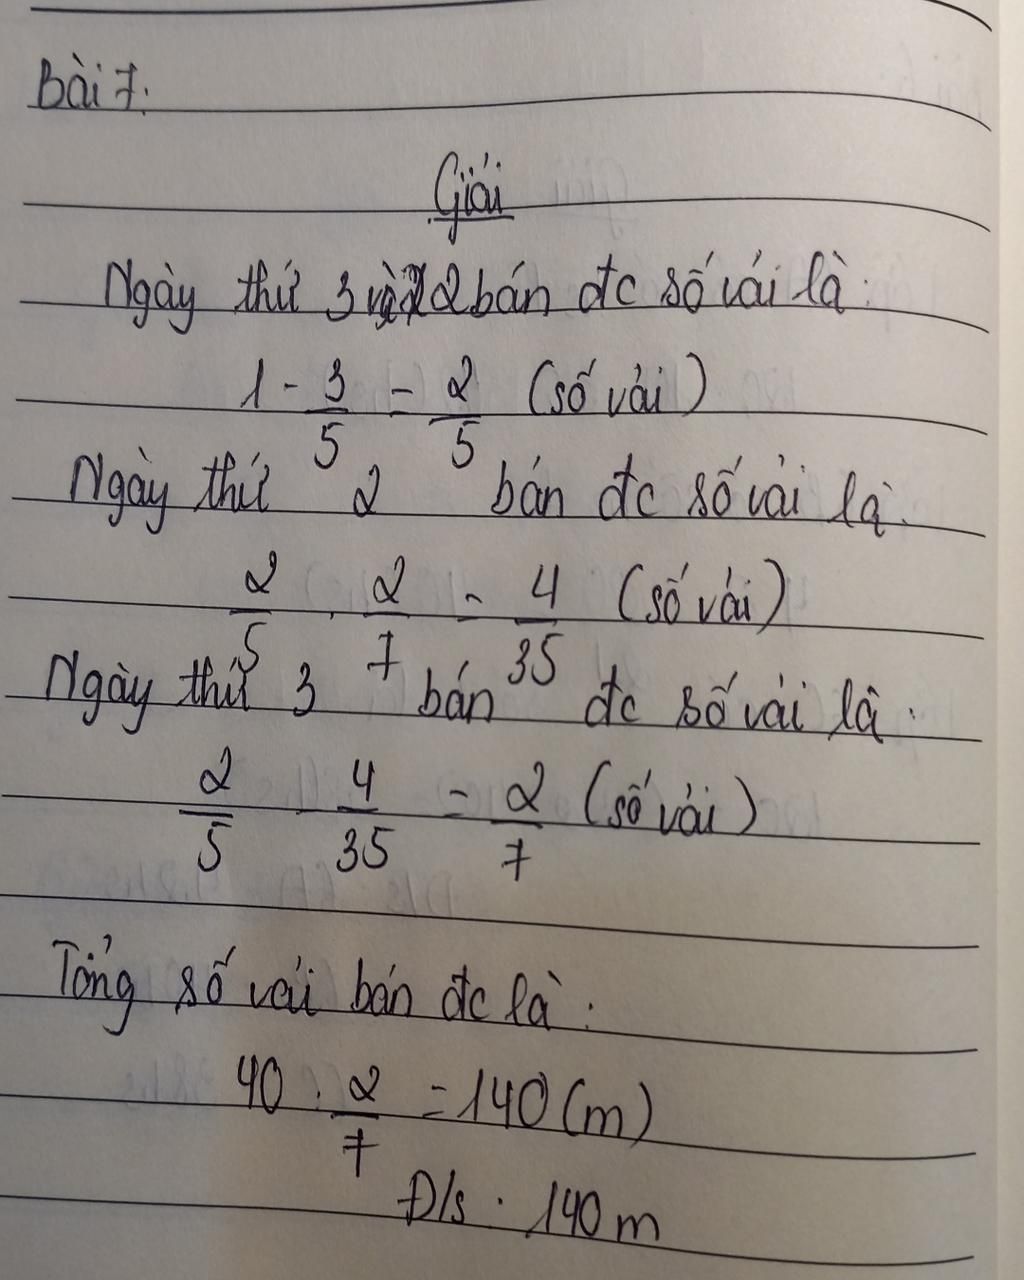 Bài 7.
Giải
Ngày thứ 3 và 2 bán đc số vải là:
1 - 3/5 = 2/5 (số vải)
Ngày thứ 2 bán đc số vải là:
2/5 . 2/7 = 4/35 (số vải)
Ngày thứ 3 bán đc số vải là:
2/5 - 4/35 = 2/7 (số vải)
Tổng số vải bán đc là:
40 : 2/7 = 140 (m)
Đ/s: 140 m